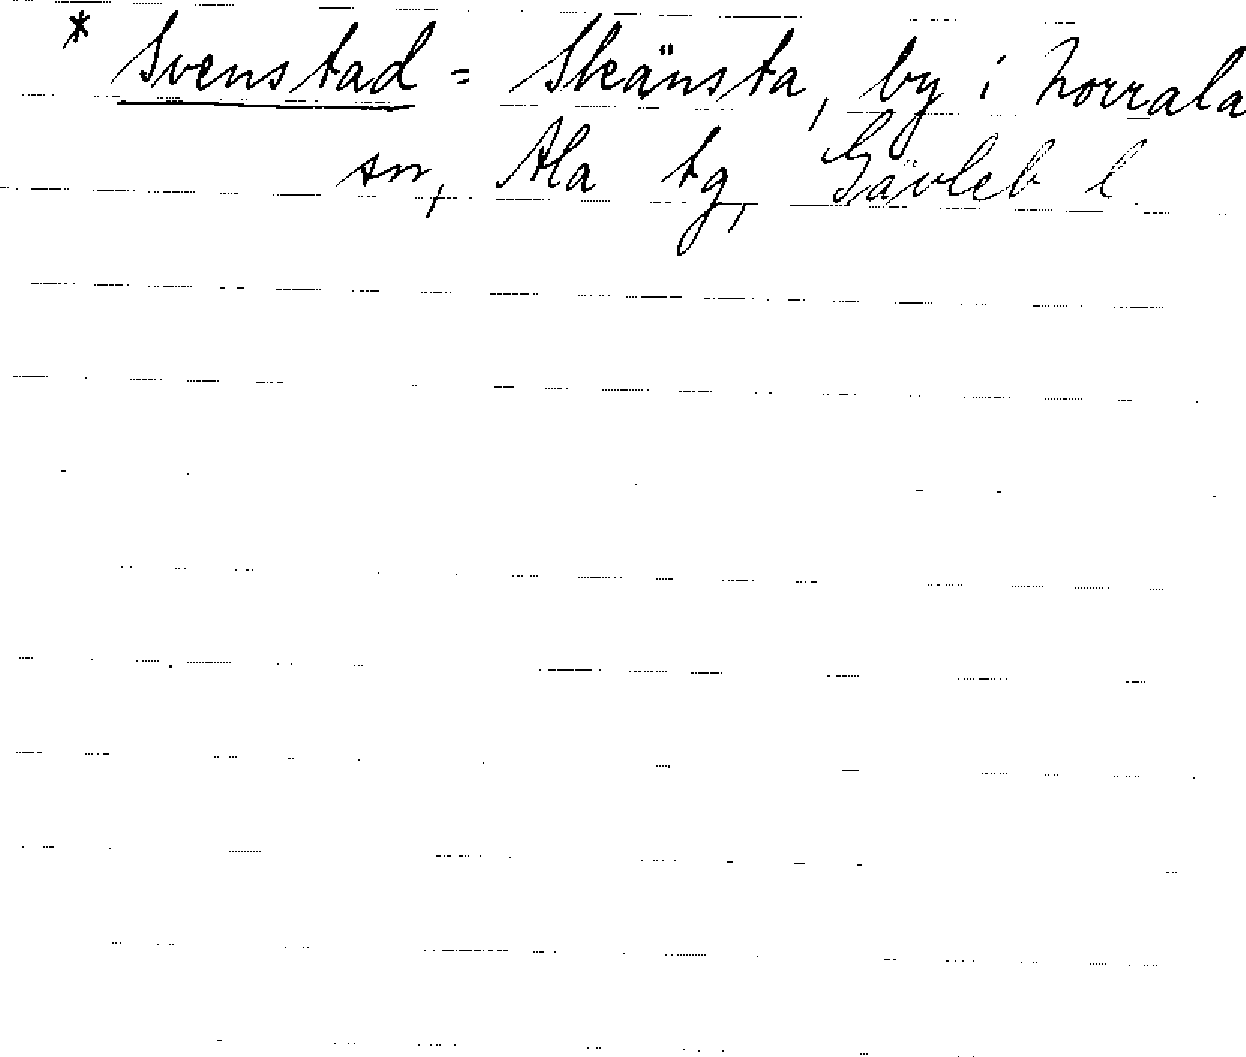 * Svenstad = Skänsta, by i Norrala
sn, Ala tg, Gävleb l.